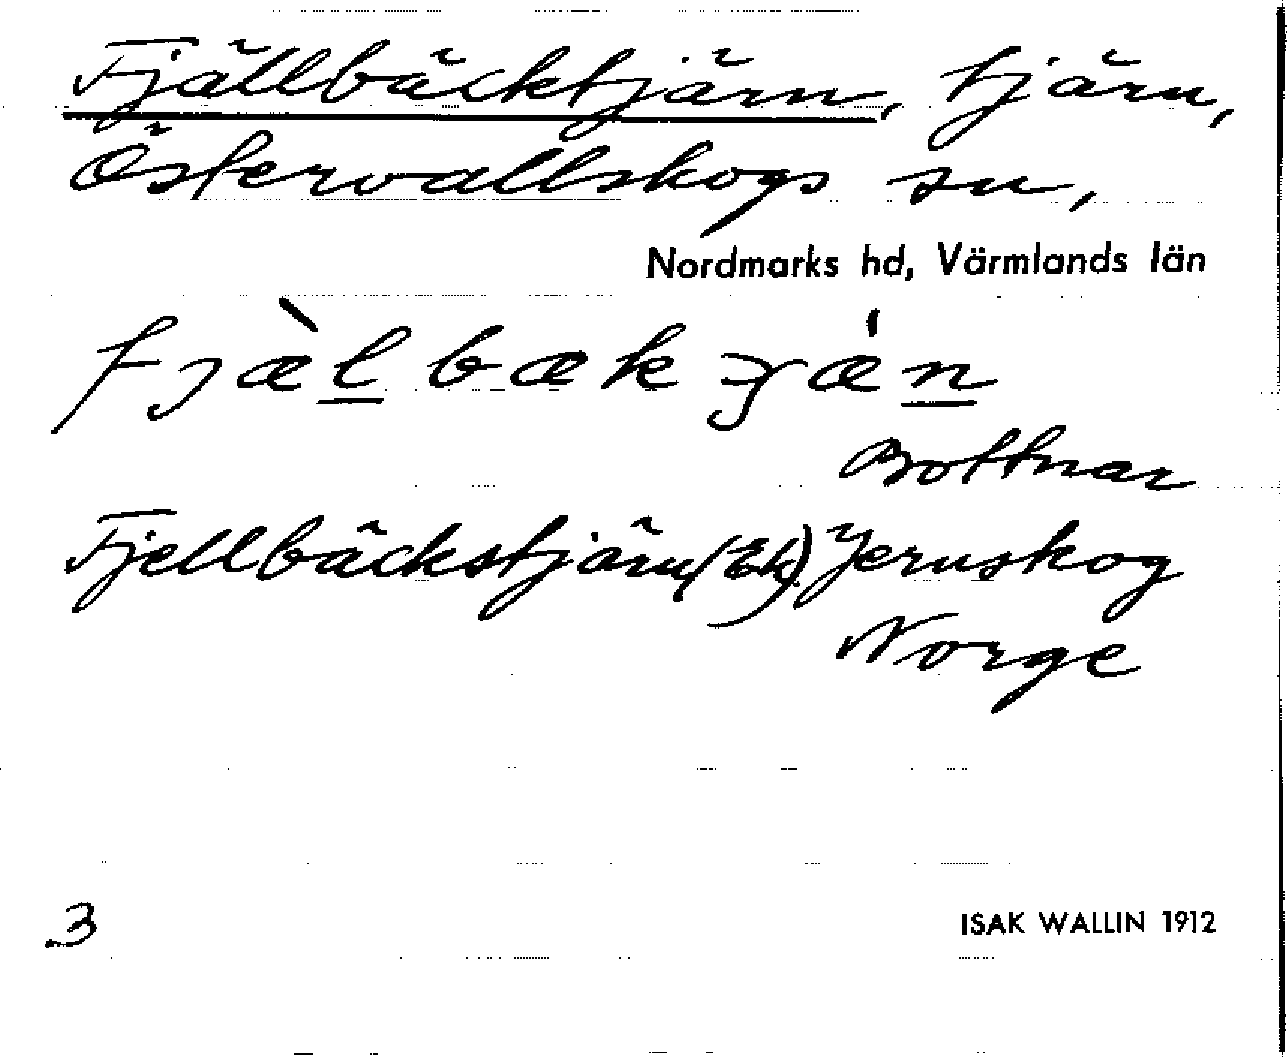 Fjällbäcktjärn, tjärn,
Östervallskogs sn,
Nordmarks hd, Värmlands län
fjæ̀lbækʒǽn
Bottnar
Fjellbäckstjärn (Ek) Jernskog
Norge
3
ISAK WALLIN 1912